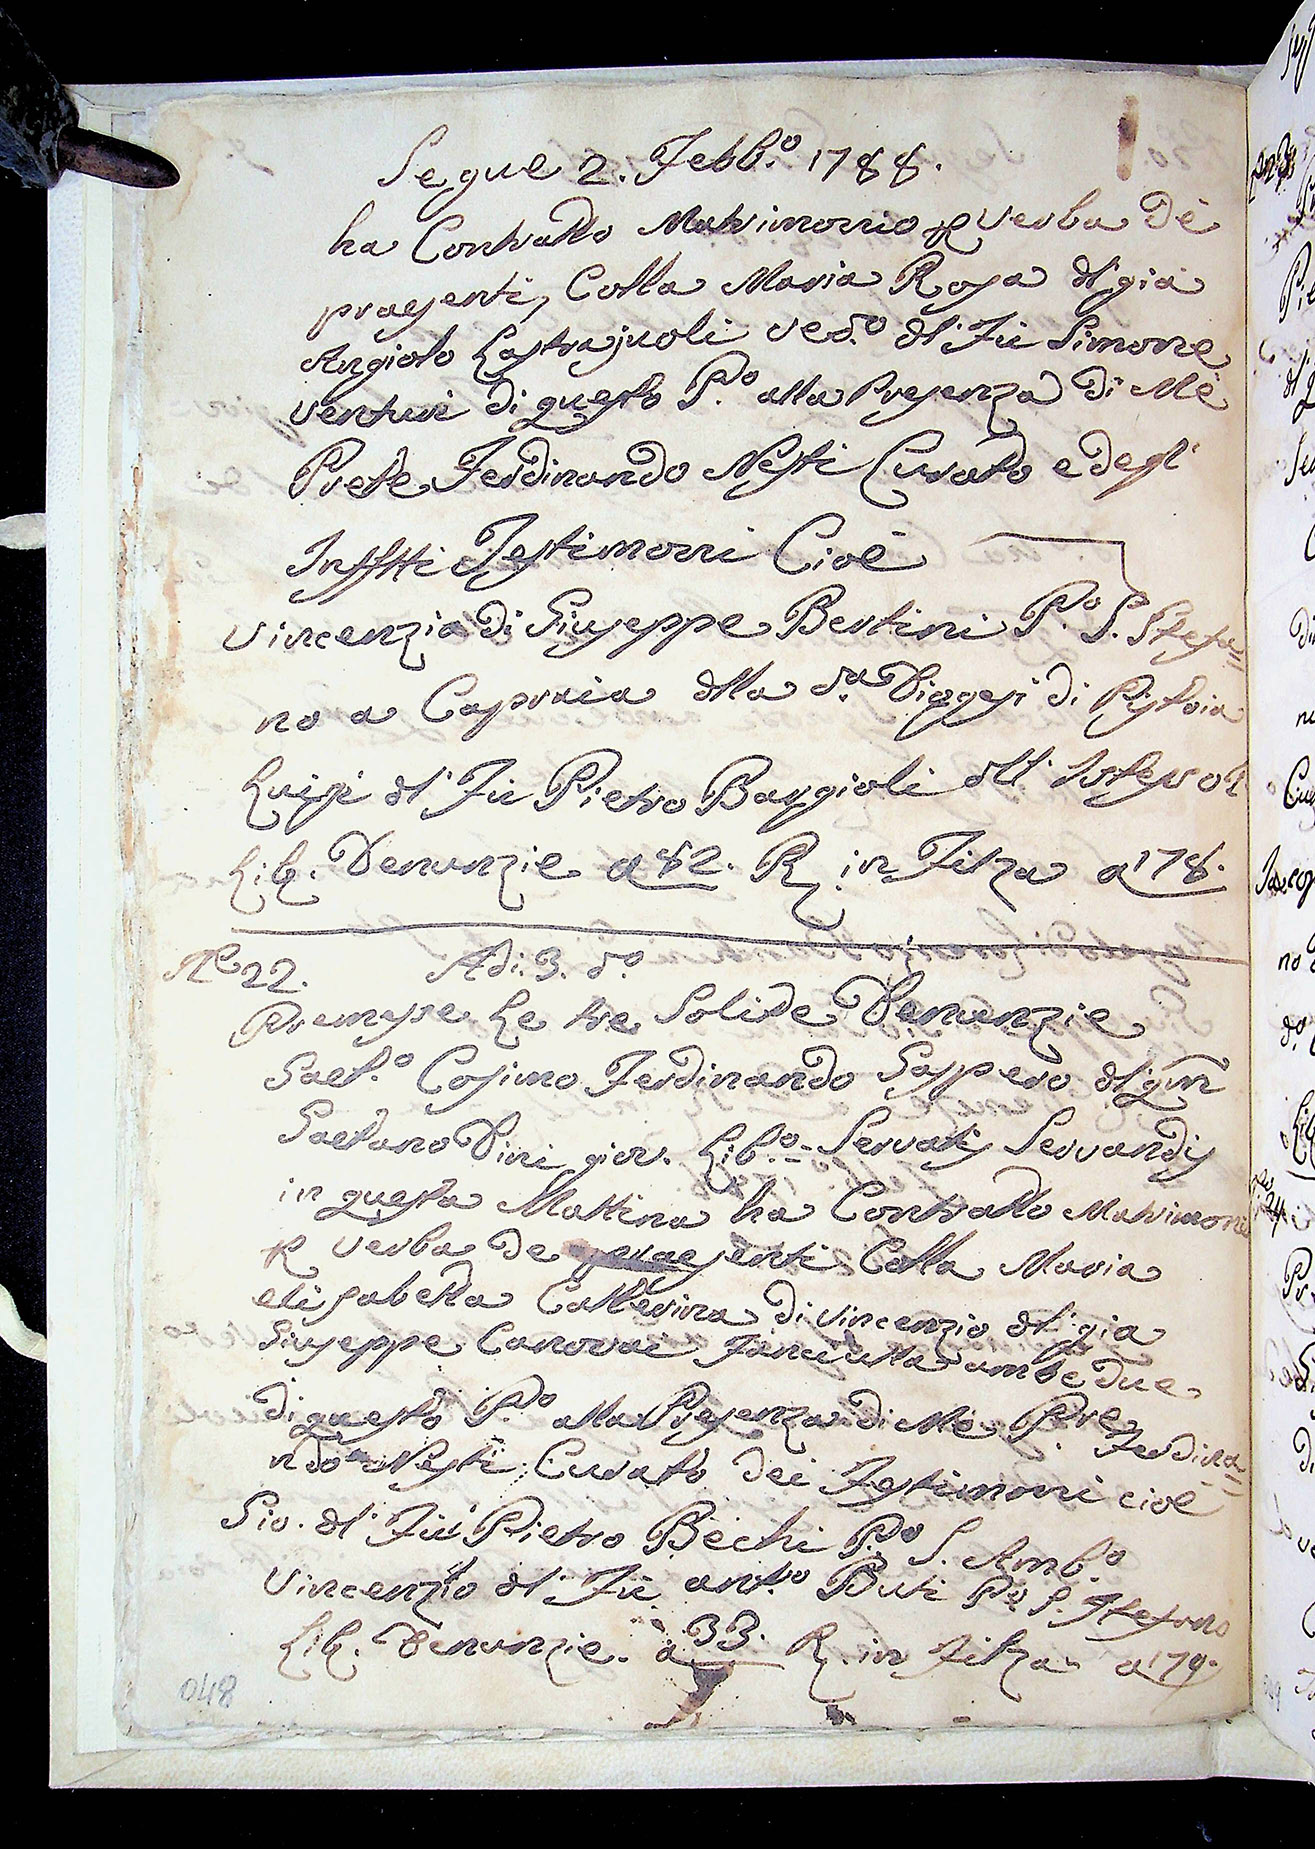 Segue 2. Febb.º 1788.
ha Contratto Matrimonio p verba de
praesenti, Colla Maria Rosa dl' già
Angiolo Lastrajuoli ved.º dl' Fù Simone
Venturi di questo P.º alla Presenza di Me
Prete Ferdinando Nesti Curato e degl'
Infftti Testimoni Cioè
Vincenzia di Giuseppe Bertini P.º S. Stefa=
no a Capraia dlla da Diogesi di Pistoia
Luigi dl' Fù Pietro Bargioli dll'
Lib. Denunzie a 82. R. in Filza a 178.
Nº 22. Adi. 3. dº
Premesse Le tre Solide Denunzie
Gaet.º Cosimo Ferdinando Gasppero dl qm
Gaetano Dini giov. Lib.º Servatis Servandis
in questa Mattina ha Contratto Matrimonio
p verba de praesenti Colla Maria
elisabetta Catterina di Vincenzio dl' già
Giuseppe Canovai Fanciulla ambe due
di questo P.º alla Presenza di Me Pre Ferdina=
ndo Nesti Curato dei Testimoni cioè
Gio. dl' Fù Pietro Bechi P.º S. Amb.º
Vincenzio dl' Fù ant.º Buti P.º S. Stefano
Lib. Denunzie. a 33. R. in Filza a 179.
048